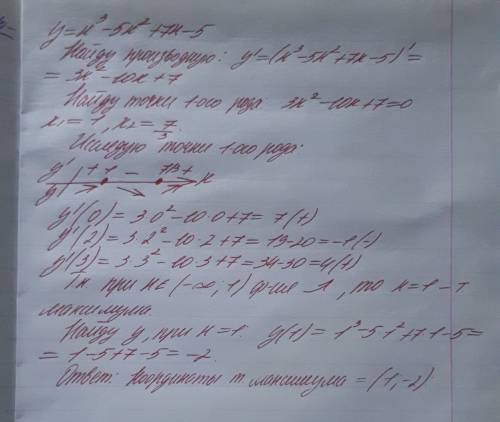 y=x³-5x²+7x-5
Найду производную: y'=(x³-5x²+7x-5)'=
=3x²-10x+7
Найду точки 1-ого рода: 3x²-10x+7=0
x₁=1, x₂=7/3.
Исследую точки 1-ого рода:
y' + 1 - 7/3 + x
y
y'(0)=3·0²-10·0+7=7(+)
y'(2)=3·2²-10·2+7=19-20=-1(-)
y'(3)=3·3²-10·3+7=34-30=4(+)
Т.к. при x∈(-∞;1) ф-ция ↗, то x=1 - т
максимума.
Найду y, при x=1. y(1)=1³-5·1²+7·1-5=
=1-5+7-5=-2
Ответ: координаты т. максимума = (1;-2)